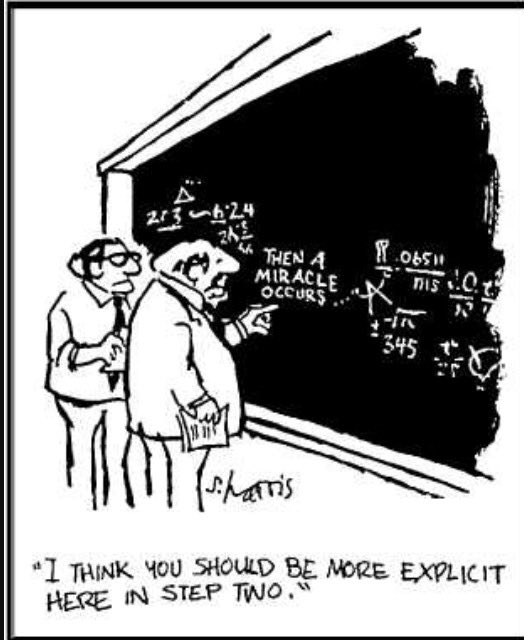 THEN A
MIRACLE
OCCURS...
.06511
345
S. Harris
"I THINK YOU SHOULD BE MORE EXPLICIT
HERE IN STEP TWO."